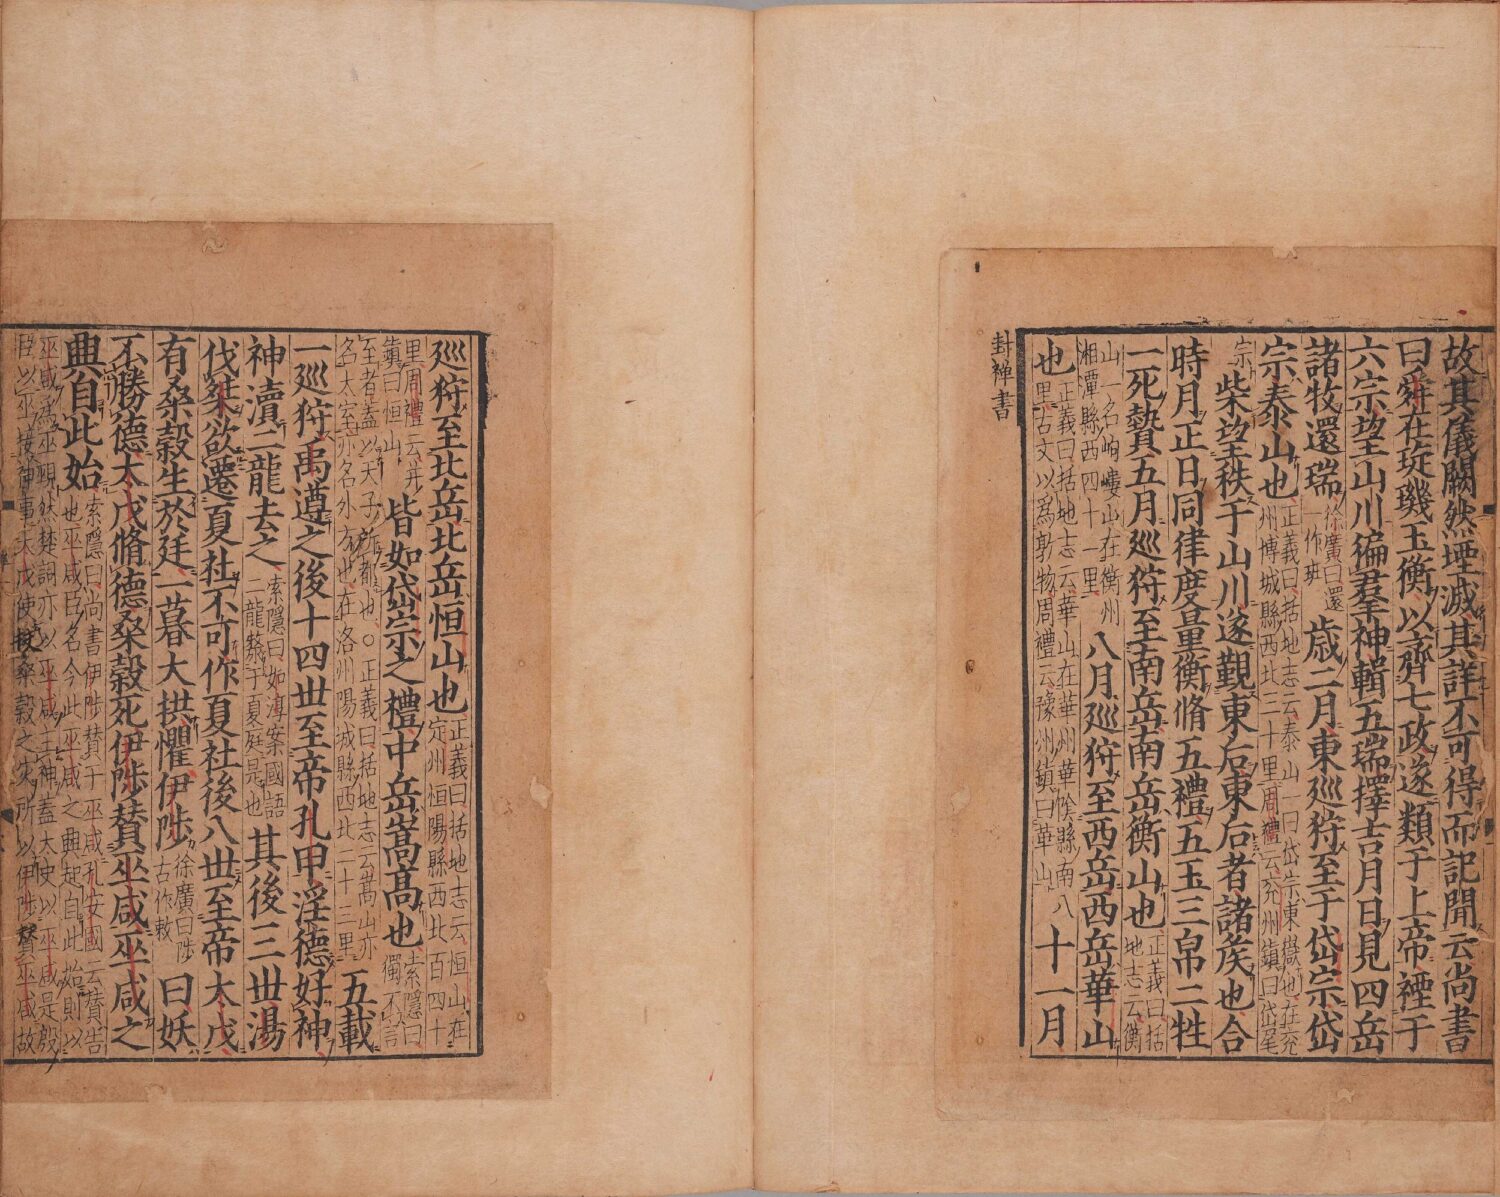 故其儀闕然堙滅其詳不可得而記聞云尚書
曰舜在琁璣玉衡以齊七政遂類于上帝禋于
六宗望山川徧羣神輯五瑞擇吉月日見四岳
諸牧還瑞徐廣曰還一作班歲二月東廵狩至于岱宗岱
宗泰山也正義曰括地志云泰山一曰岱宗東嶽也在兖州博城縣西北三十里周禮云兖州鎮曰岱宗
柴望秩于山川遂覲東后東后者諸矦也合
時月正日同律度量衡脩五禮五玉三帛二牲
一死贄五月廵狩至南岳南岳衡山也正義曰括地志云衡
山一名岣嶁山在衡州湘潭縣西四十一里八月廵狩至西岳西岳華山
也正義曰括地志云華山在華州華隂縣南八里古文以為敦物周禮云豫州鎮曰華山十一月
封禅書
廵狩至北岳北岳恒山也正義曰括地志云恒山在定州恒陽縣西北百四十
里周禮云并州鎮曰恒山皆如岱宗之禮中岳嵩髙也索隱曰獨不言
至者蓋以天子所都也○正義曰括地志云嵩山亦名太室亦名外方也在洛州陽城縣西北二十三里五載
一廵狩禹遵之後十四丗至帝孔甲淫德好神
神瀆二龍去之索隱曰如淳案國語二龍漦于夏庭是也其後三丗湯
伐桀欲遷夏社不可作夏社後八丗至帝太戊
有桑穀生於廷一暮大拱懼伊陟徐廣曰陟古作敕曰妖
不勝德太戊脩德桑穀死伊陟賛巫咸巫咸之
興自此始索隱曰尚書伊陟賛于巫咸孔安國云賛告也巫咸臣名今此巫咸之興起自此始則以
巫咸為巫覡然楚詞亦以巫咸主神蓋太史以巫咸是殷臣以巫接神事太戊使禳桑穀之灾所以伊陟賛巫咸故